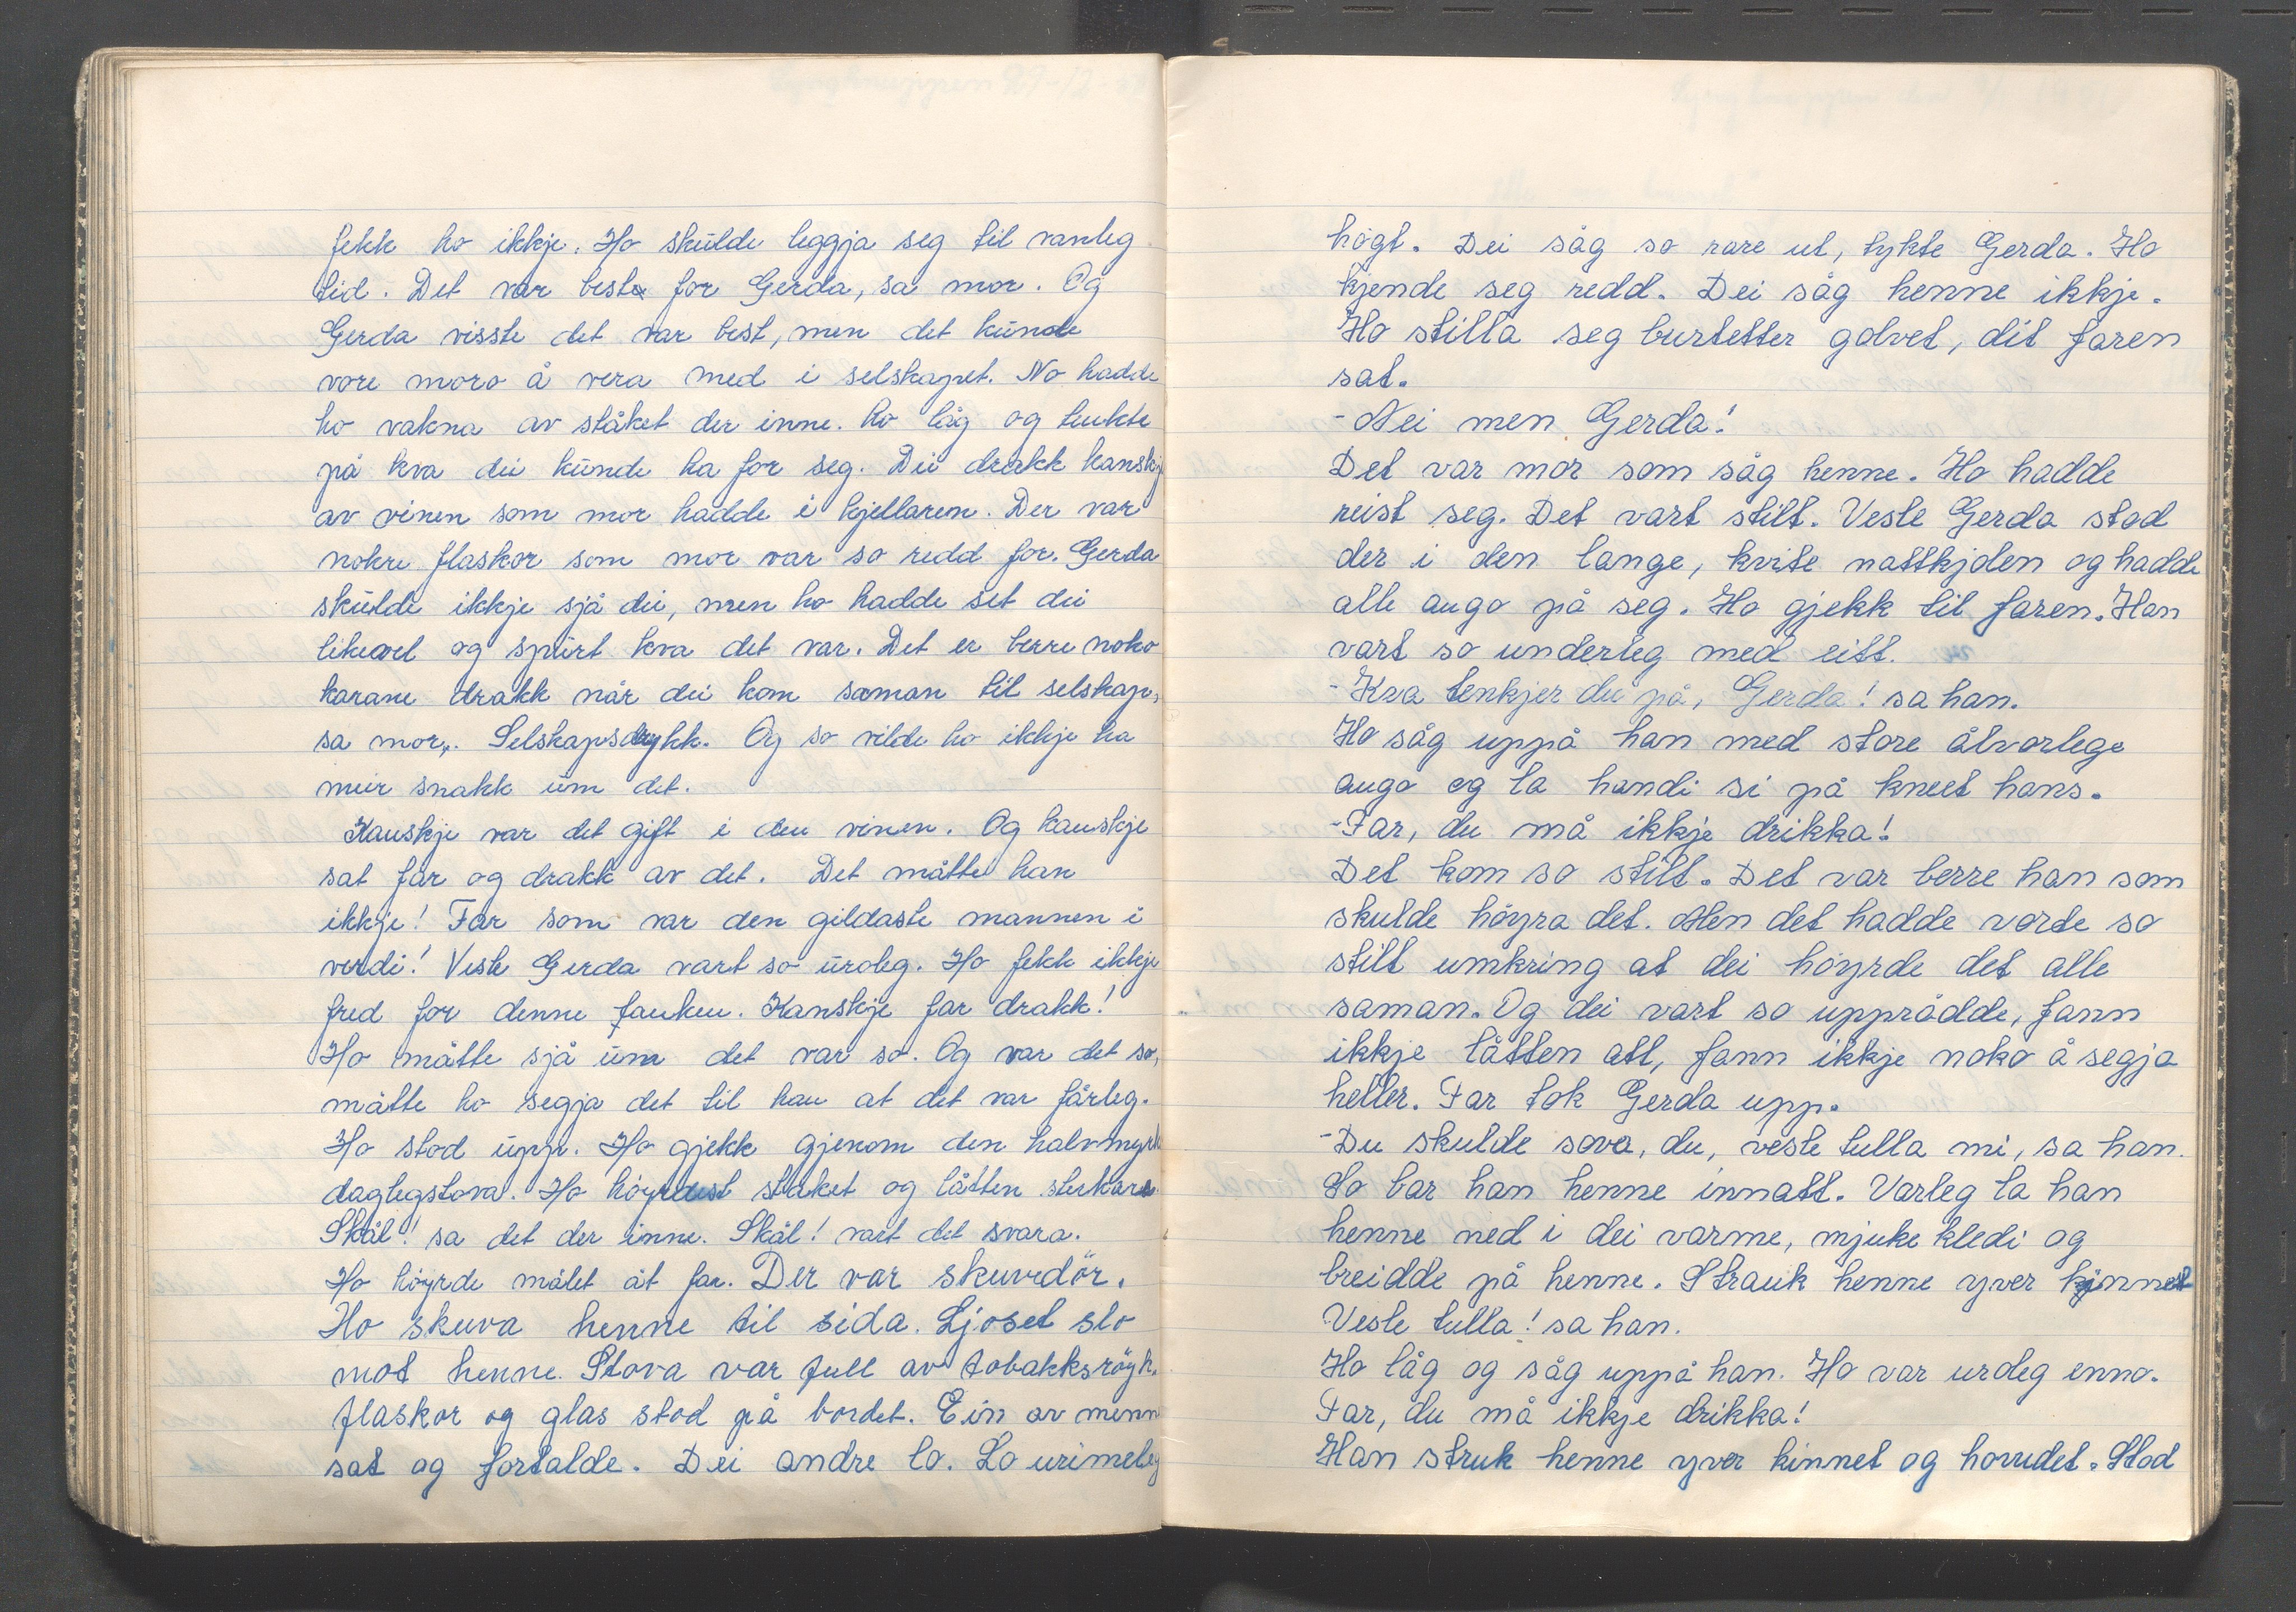 fekk ho ikkje. Ho skulde leggja seg til vanleg
tid. Det var best for Gerda, sa mor. Og
Gerda visste det var best, men det kunde
vore moro å vera med i selskapet. No hadde
ho vakna av ståket der inne. Ho låg og tenkte
på kva dei kunde ha for seg. Dei drakk kanskj
av vinen som mor hadde i kjellaren. Der var
nokre flaskor som mor var so redd for. Gerda
skulde ikkje sjå dei, men ho hadde set dei
likevel og spurt kva det var. Det er berre noko
karane drakk når dei kom saman til selskap,
sa mor. Selskapsdrykk. Og so vilde ho ikkje ha
meir snakk um det.
Kanskje var det gift i den vinen. Og kanskje
sat far og drakk av det. Det måtte han
ikkje! Far som var den gildaste mannen i
verdi! Vesle Gerda vart so uroleg. Ho fekk ikkje
fred for denne tanken. Kanskje far drakk!
Ho måtte sjå um det var so. Og var det so,
måtte ho segja det til han at det var fårleg.
Ho stod upp. Ho gjekk gjenom den halvmyrk
daglegstova. Ho høyrde ståket og låtten sterkare
Skål! sa det der inne. Skål! vart det svara.
Ho höyrde målet åt far. Der var skuvdör.
Ho skuva henne til sida. Ljoset slo
mot henne. Stova var full av tobakksröyk.
flaskor og glas stod på bordet. Ein av menn
sat og fortalde. Dei andre lo. Lo urimeleg
högt. Dei såg so rare ut, tykte Gerda. Ho
kjende seg redd. Dei såg henne ikkje.
Ho stilla seg burtetter golvet, dit faren
sat.
- Nei men Gerda!
Det var mor som såg henne. Ho hadde
reist seg. Det vart stilt. Vesle Gerda stod
der i den lange, kvite nattkjolen og hadde
alle augo på seg. Ho gjekk til faren. Han
vart so underleg med eitt.
- Kva tenkjer du på, Gerda! sa han.
Ho såg uppå han med store ålvorlege
augo og la handi si på kneet hans.
- Far, du må ikkje drikka!
Det kom so stilt. Det var berre han som
skulde höyra det. Men det hadde vorte so
stilt umkring at dei höyrde det alle
saman. Og dei vart so upprådde, fann
ikkje låtten att, fann ikkje noko å segja
heller. Far tok Gerda upp.
- Du skulde sova, du, vesle tulla mi, sa han.
So bar han henne innatt. Varleg la han
henne ned i dei varme, mjuke kledi og
breidde på henne. Strauk henne yver kinnet
Vesle tulla! sa han.
Ho låg og såg uppå han. Ho var uroleg enno.
Far, du må ikkje drikka!
Han struk henne yver kinnet og hovudet. Stod